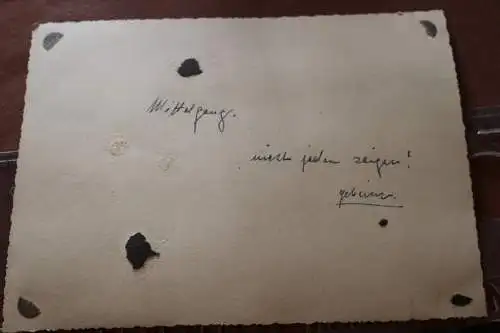 Mittelgang.
nicht jeden zeigen!
geheim.